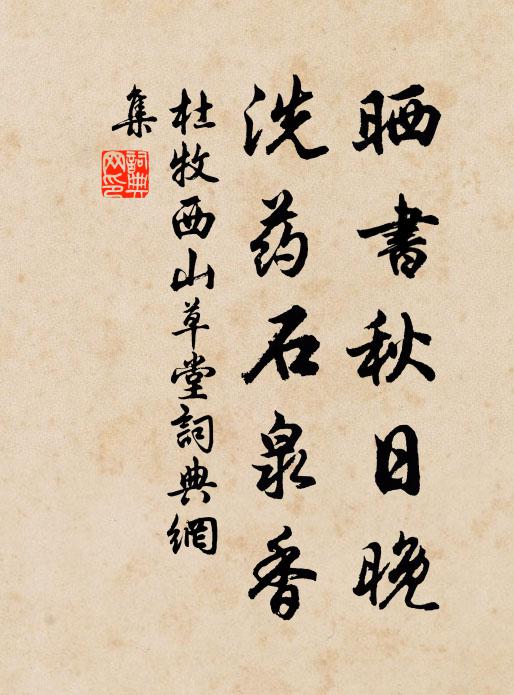 晒書秋日晚
洗药石泉香
杜牧西山草堂詞典網
集
詞典
网印